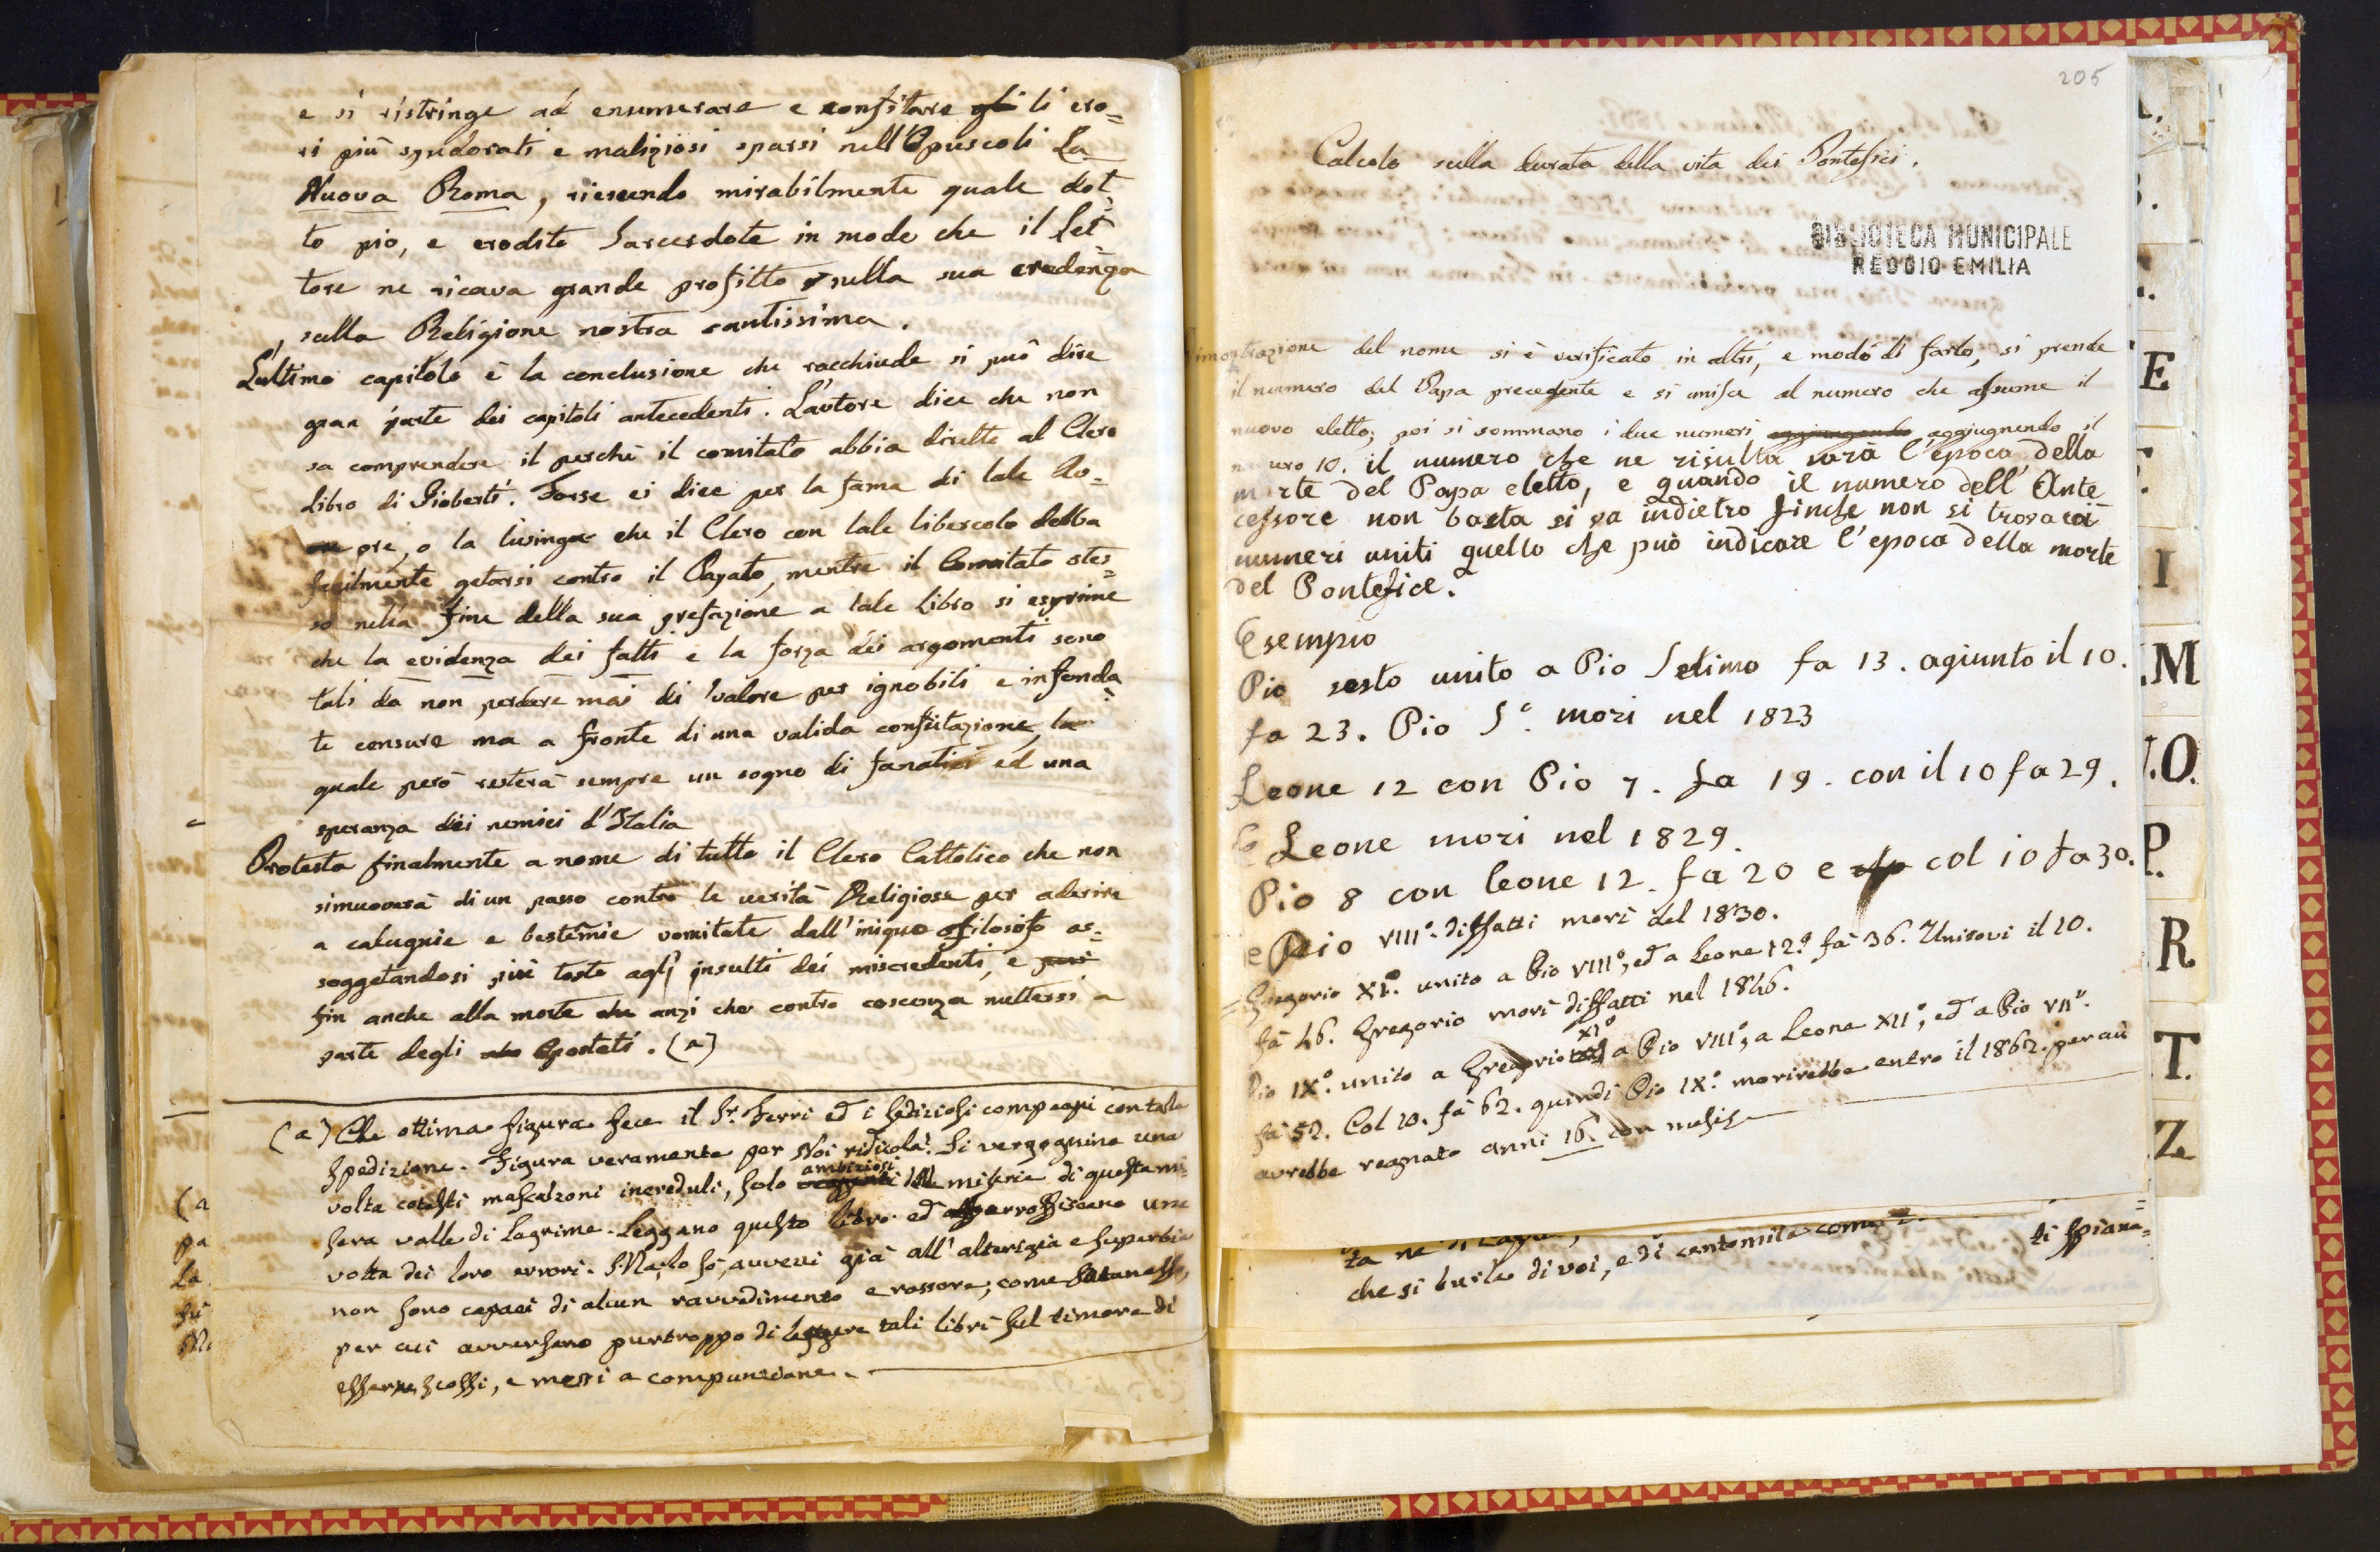 e si ristringe ad enumerare e confutare gli li ero=
ri più spudorati e maligiosi sparsi nell'Opuscoli La
Nuova Roma, riescendo mirabilmente quale dot=
to pio, e erodito Sarcerdote in mode che il Let=
tore ne ricava grande profitto sulla sua credenza
sulla Religione nostra santissima.
L'ultimo capitolo è la conclusione che racchiude si può dire
gran parte dei capitoli antecedenti. L'autore dice che non
sa comprendere il perchè il comitato abbia diretto al Clero
Libro di Gioberti. Forse ei dice per la fama di tale Au=
ore, o la lusinga che il Clero con tale libercolo debba
facilmente getarsi contro il Papato, mentre il Comitato stes=
so nella fine della sua prefazione a tale Libro si esprime
che la evidenza dei fatti e la forza dei argomenti sono
tali da non perdere mai di valore per ignobili e infonda=
te censure ma a fronte di una valida confutazione, la
quale però resterà sempre un sogno di fanatici ed una
speranza dei nemici d'Italia
Protesta finalmente a nome di tutto il Clero Cattolico che non
simuoverà di un passo contro le verità Religiose per aderire
a calugnie e bestemie vomitate dall'iniquo filosofo as=
soggetandosi più tosto agli insulti dei miscredenti, e
fin anche alla morte che anzi che contro coscenza mettersi a
parte degli Apostati. (a)
(a) Che ottima figura fece il Sr. Ferri ed i sediziosi compagni con tale
Spedizione. Figura veramente per Noi ridicola! Si vergognino una
ambiziosi
volta cotesti mascalzoni increduli, solo nelle miserie di questa mi=
sera valle di Lagrime. Leggano questo libro ed arrossiscano una
volta dei loro errori. Ma, lo so, avvezzi già all'alterigia e superbia
non sono capaci di alcun ravvedimento e rossore; come Satanasso,
per cui avversano purtroppo di leggere tali libri sul timore di
esserne scossi, e messi a compunzione.
(a
pa
La
su
205
Calcolo sulla durata della vita dei Pontefici.
BIBLIOTECA MUNICIPALE
REGGIO EMILIA
imostrazione del nome si è verificato in altri, e modo di farlo, si prende
il numero del Papa precedente e si unisce al numero che assume il
nuovo eletto; poi si sommano i due numeri aggiungendo aggiugnendo il
numero 10. il numero che ne risulta sarà l'epoca della
morte del Papa eletto, e quando il numero dell'Ante
cessore non basta si va indietro finche non si trova coi
numeri uniti quello che può indicare l'epoca della morte
del Pontefice.
Esempio
Pio sesto unito a Pio Setimo fa 13. agiunto il 10.
fa 23. Pio S° mori nel 1823
Leone 12 con Pio 7. fa 19. con il 10 fa 29.
e Leone mori nel 1829.
Pio 8 con leone 12. fa 20 e col 10 fa 30.
e Pio VIII°. diffatti morì del 1830.
= Gregorio XI°. unito a Pio VIII°, ed a Leone 12°. fà 36. Unisovi il 10.
fà 46. Gregorio morì diffatti nel 1846.
XI°
Pio IX°. unito a Gregorio a Pio VIII°, a Leone XII°, ed a Pio VII°.
fà 52. Col 10. fà 62. quindi Pio IX°. morirebbe entro il 1862. per cui
avrebbe regnato anni 16. con
ta ne
che si burla di voi, e di centomila come
ti spiana=
E
I
.M
.O.
P.
R.
T.
Z.